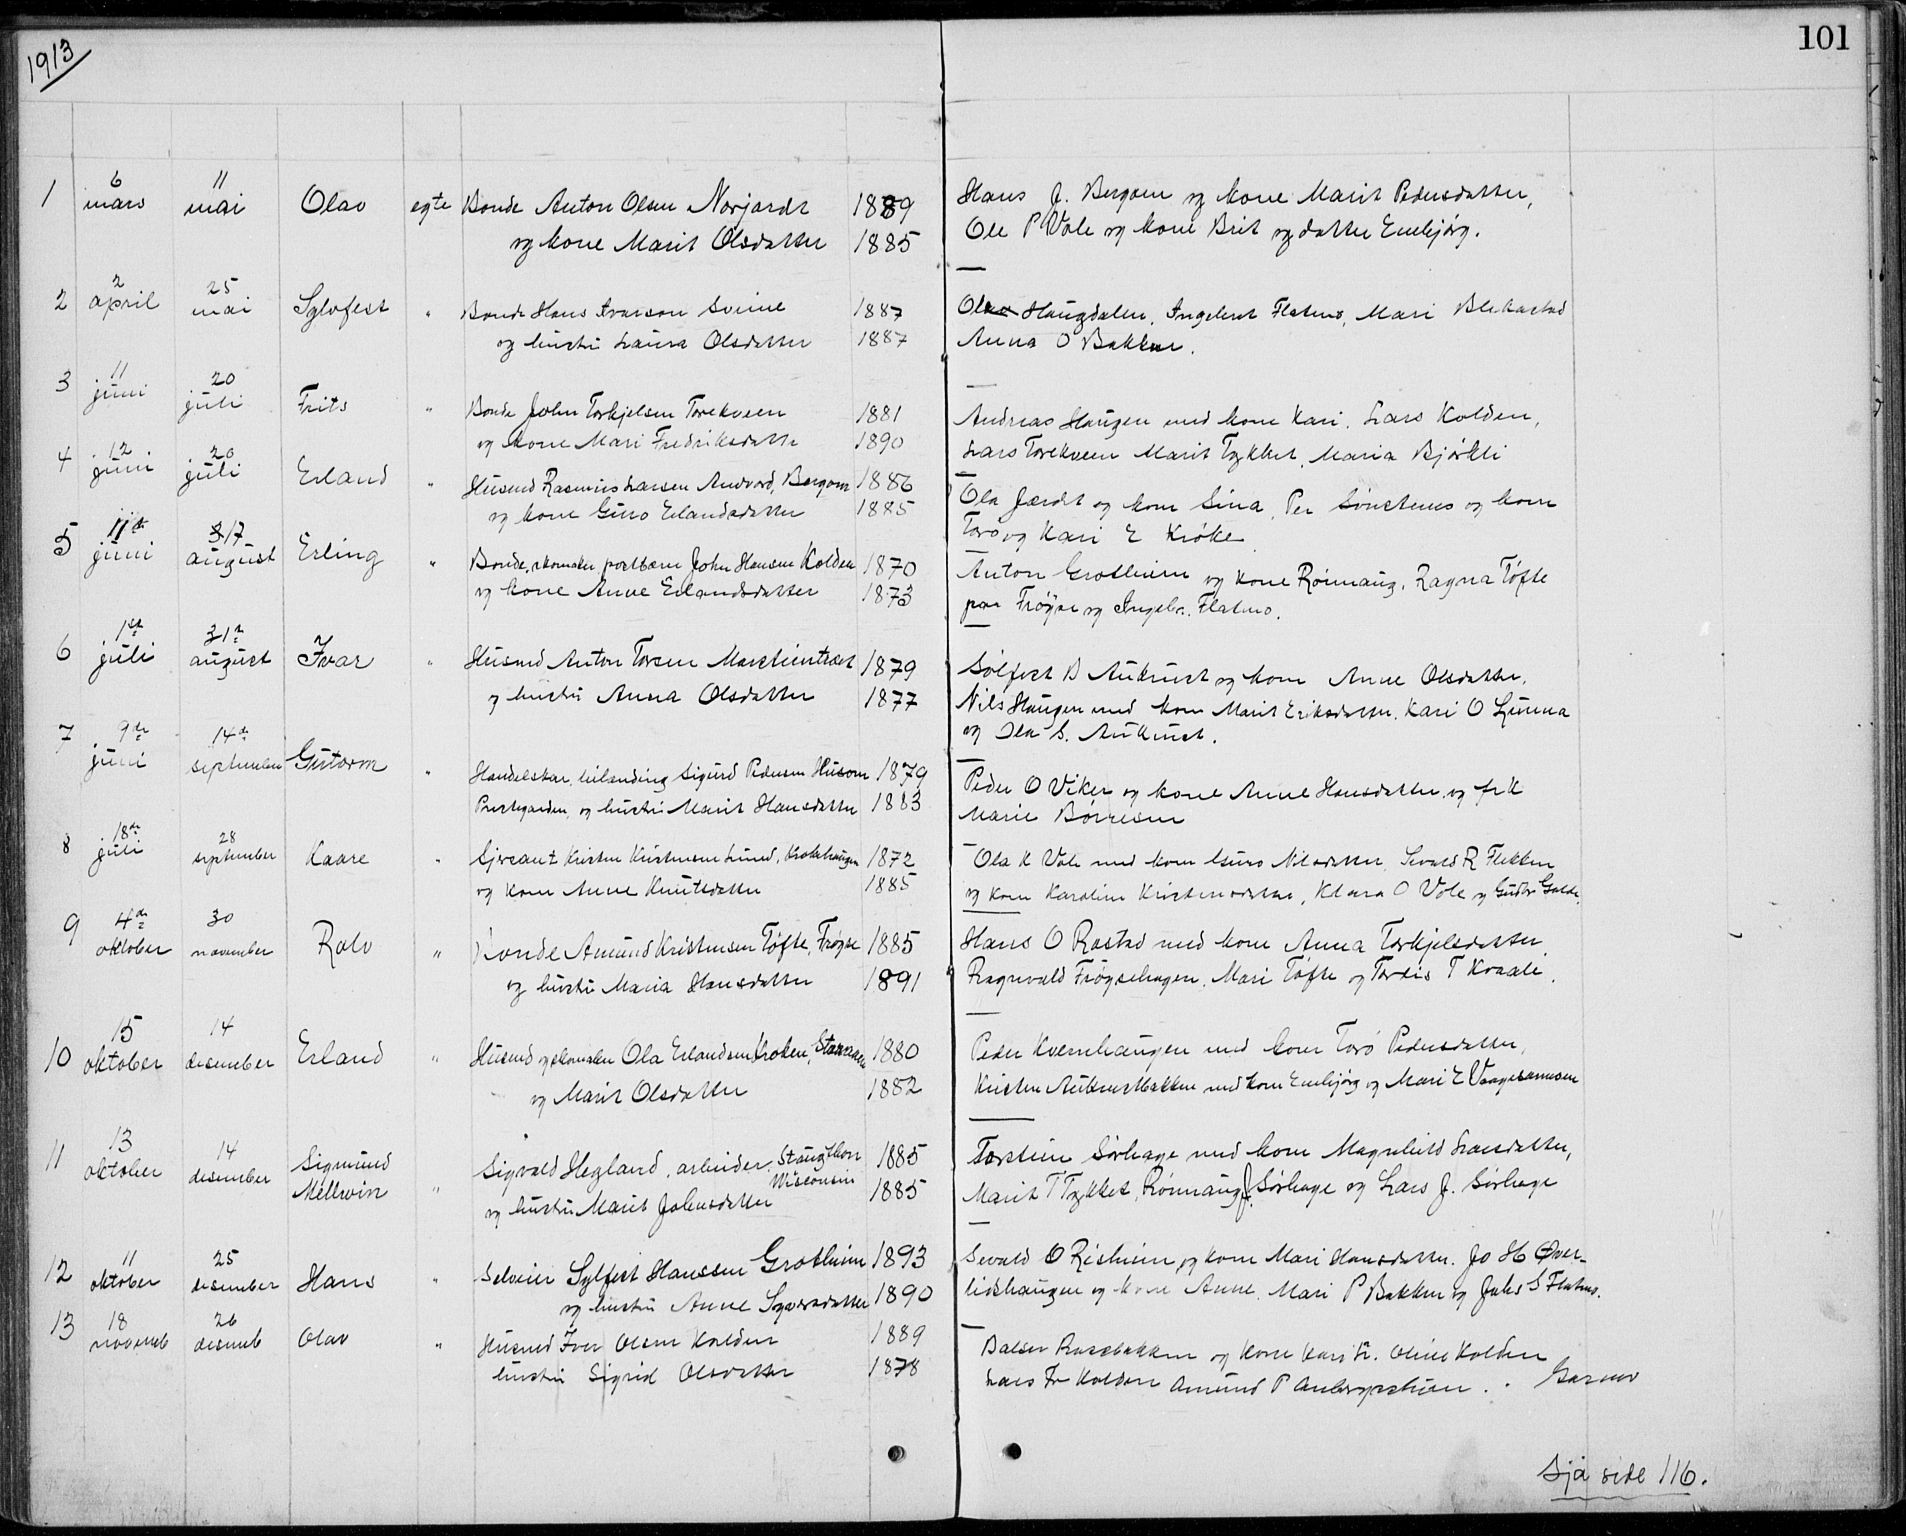 1913
101
1 6 mars 11 mai Olav egte Bonde Anton Olsen Norjordet 1889
og kone Marit Olsdatter 1885
Hans J. Bergom og kone Marit Pedersdatter,
Ole P Vole og kone Brit og datter Embjørg.
2 2 april 25 mai Sylvfest " Bonde Hans Ivarson Sveine 1887
og hustru Laura Olsdatter 1887
Ola Haugdalen, Ingebret Flatmo, Mari Blekastad
Anna O Bakken.
3 11 juni 20 juli Frits " Bonde John Torkjelsen Torekveen 1881
og kone Mari Fredriksdatter 1890
Andreas Haugen med kone Kari, Lars Kolden,
Lars Torekveen Marit Tykket, Maria Bjørkli
4 12 juni 20 juli Erland " Husmd Rasmus Larsen Andvord, Bergom 1886
og kone Guro Erlandsdatter 1885
Ola Jærdt og kone Sina, Per og kone
Torø og Kari E Krøke
5 11te juni 17 august Erling " Bonde, skomaker, postbærer John Hansen Kolden 1870
og kone Anne Erlandsdatter 1873
Anton Grotheim og kone Rønnaug, Ragna Tøfte
paa Frøyse og Ingebr. Flatmo.
6 1st juli 31te august Ivar " Husmd Anton Torsen 1879
og hustru Anna Olsdatter 1877
Sølfest B Aukrust og kone Anne Olsdatter,
Nils Haugen med kone Marit Eriksdatter, Kari O Lunna
og Ola S. Aukrust.
7 9de juni 14de september Gutorm " Handelskar, Sigurd Pedersen Husom 1879
Prestgarden, og hustru Marit Hansdatter 1883
Peder O Viker og kone Anne Hansdatter og frk
Marie Børresen
8 18de juli 28 september Kaare " Sjersant Kristen Kristensen Lund, Krokhaugen 1872
og kone Anne Knutsdatter 1885
Ola K Vole med kone Guro Nilsdatter, Sevald R Flekken
og kone Karoline Kristensdatter, Klara O Vole og Gudbr Galde.
9 4de oktober 30 november Rolv " Bonde Amund Kristensen Tøfte, Frøyse 1885
og hustru Maria Hansdatter 1891
Hans O Rastad med kone Anna Torkjelsdatter,
Ragnvald Frøysehagen, Mari Tøfte og Tordis T Kraale.
10 15 oktober 14 desember Erland " Husmd og skomaker Ola Erlandsen Kroken, 1880
og Marit Olsdatter 1882
Peder Kvernhaugen med kone Torø Pedersdatter,
Kristen Aukrustbakken med kone Embjørg og Mari E
11 13 oktober 14 desember Sigmund " Sigvald Hegland, arbeider, Staugthon 1885
Mellvin Wisconsin
og hustru Marit Johnsdatter 1885
Torstein Sørhage med kone Magnhild Larsdatter,
Marit T Tykket, Rønnaug J. Sørhage og Lars J. Sørhage
12 11 oktober 25 desember Hans " Selveier Sylfest Hanssen Grotheim 1893
og hustru Anne Syversdatter 1890
Sevald O Risheim og kone Mari Hansdatter. Jo H Øver-
lidshaugen og kone Anne, Mari P Bakken og Johs S Flatmo.
13 18 novemb 26 desemb Olav " Husmd Iver Olsen Kolden 1889
hustru Sigrid Olsdatter 1878
Balser og kone Kari Oline Kolden
Lars Kolden Amund P. Garmo
Sjå side 116.